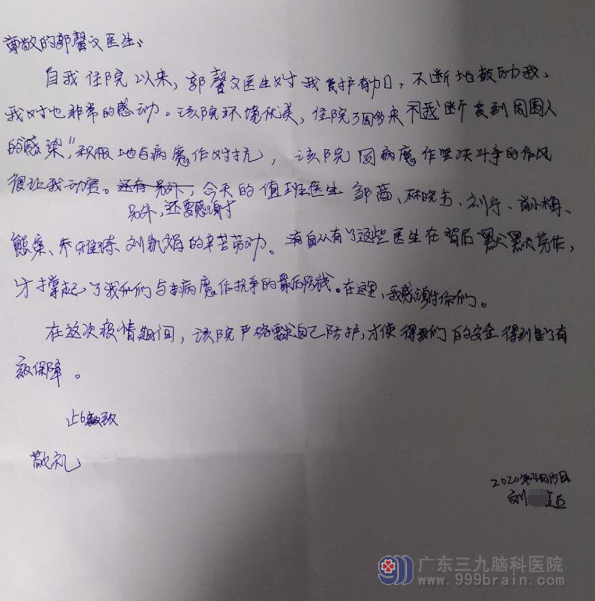 尊敬的郭馨文医生、
自我住院以来，郭馨文医生对我爱护有加，不断地鼓励我，
我对她非常的感动。该院环境优美，住院3周多来不断受到周围人
的感染，积极地与病魔作对抗，该院同病魔作坚决斗争的作风
很让我动赞。今天的值班医生 邹茜、林晓
另外，还要感谢
熊、乔雅琼、刘凯娟的辛苦劳动。有了这些医生在背后默默劳作，
才撑起了我们与病魔作抗争的最后防线。在这里，我感谢你们。
在这次疫情期间，该院严格要求自己防护，才使得我们的安全得到有
效保障。
此致
敬礼
2020年4月15日
刘
广东三九脑科医院
www.999brain.com